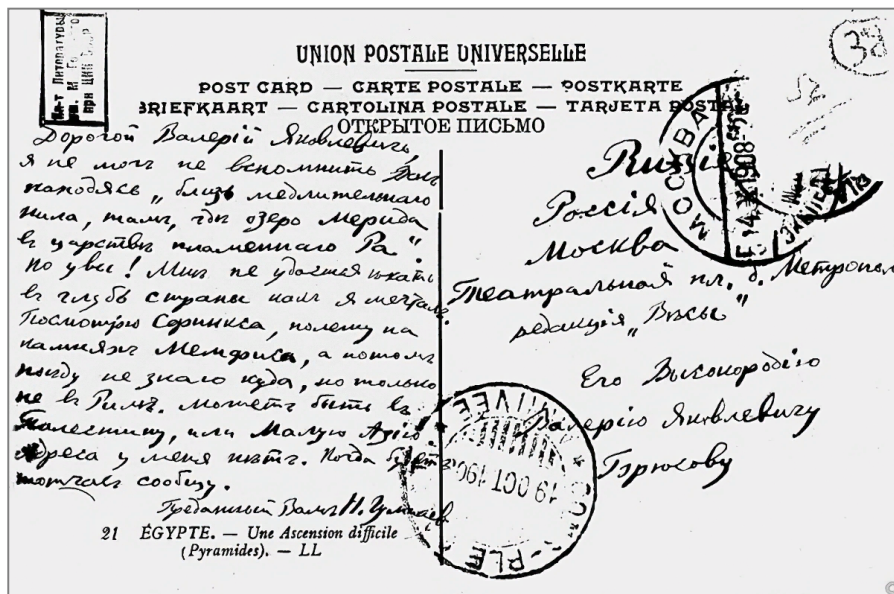 Ин-т Литературы
им. М. Го
при ЦИК СССР
38
52
UNION POSTALE UNIVERSELLE
POST CARD — CARTE POSTALE — POSTKARTE
BRIEFKAART — CARTOLINA POSTALE — TARJETA POSTAL
ОТКРЫТОЕ ПИСЬМО
Дорогой Валерій Яковлевичъ,
я не могъ не вспомнить Васъ
находясь „близь медлительнаго
Нила, тамъ, гдѣ озеро Мерида
въ царствѣ пламеннаго Ра".
Но увы! Мнѣ не удается ѣхать
въ глубь страны какъ я мечталъ.
Посмотрю Сфинкса, полежу на
камняхъ Мемфиса, а потомъ
поѣду не знаю куда, но только
не въ Римъ. Можетъ быть въ
Палестину, или Малую Азію.
Адреса у меня нѣтъ. Когда будетъ
тотчасъ сообщу.
Преданный Вамъ Н. Гумилевъ
21 ÉGYPTE. — Une Ascension difficile
(Pyramides). — LL
Russie
Россія
Москва
Театральная пл. д. Метрополь
редакція „Вѣсы"
Его Высокородію
Валерію Яковлевичу
Брюсову
МОСКВА
1908
19 OCT 190